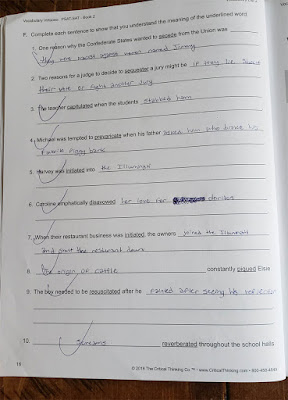 Vocabulary Virtuoso - PSAT/SAT - Book 2
F. Complete each sentence to show that you understand the meaning of the underlined word.
1. One reason why the Confederate States wanted to secede from the Union was
they were named
named Jimmy
2. Two reasons for a judge to decide to sequester a jury might be if they be
their vote or fight another jury
3. The teacher capitulated when the students stabbed him
4. Michael was tempted to prevaricate when his father asked him who broke his
favorite piggy bank
5. Harvey was initiated into the Illuminati
6. Caroline emphatically disavowed her love for donuts
7. When their restaurant business was initiated, the owners joined the Illuminati
and burnt the restaurant down
8. The origin of cattle constantly piqued Elsie
9. The boy needed to be resuscitated after he passed after seeing his
10. Screams reverberated throughout the school halls
16
© 2016 The Critical Thinking Co.™ • www.CriticalThinking.com • 800-458-4849